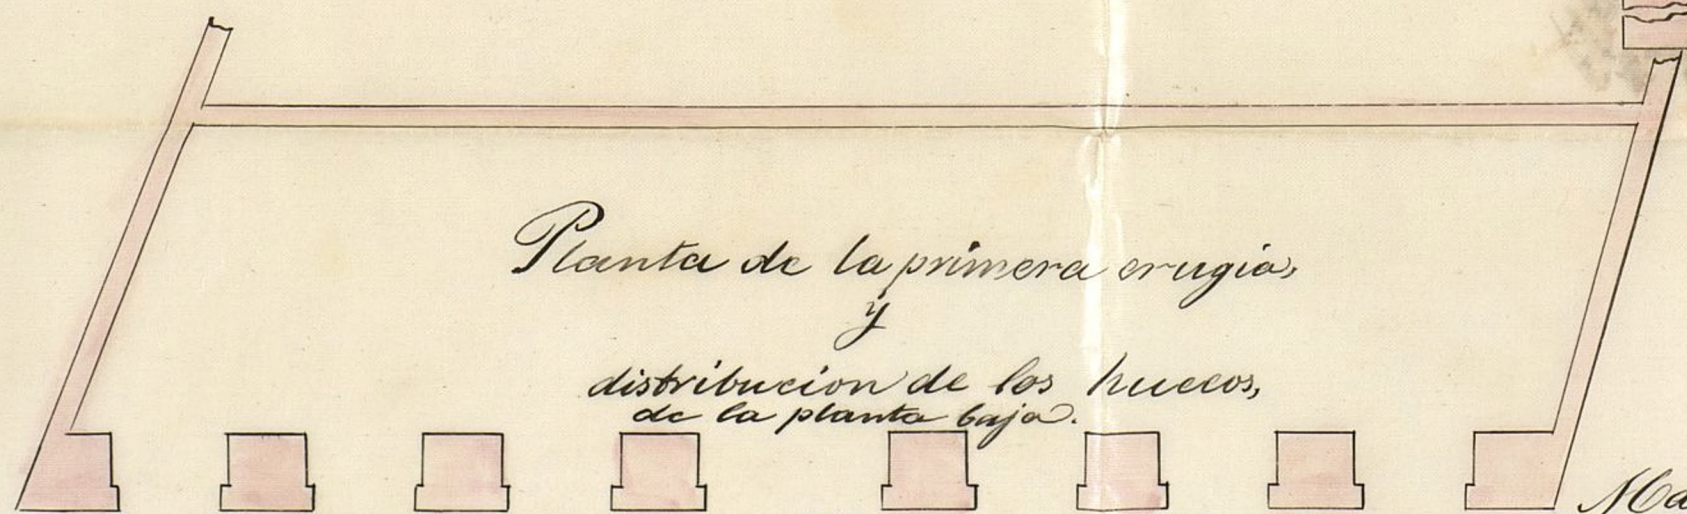 Planta de la primera crugia,
y
distribucion de los huecos,
de la planta baja.
Ma